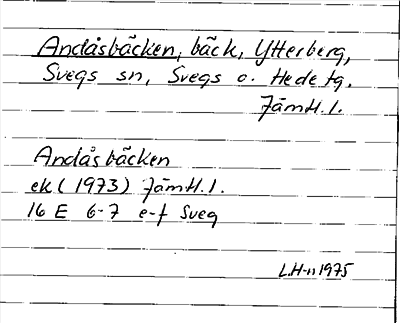 Andåsbäcken, bäck, Ytterberg,
Svegs sn, Svegs o. Hede tg,
Jämtl. l.
Andåsbäcken
ek (1973) Jämtl. l.
16 E 6-7 e-f Sveg
L.H-n 1975